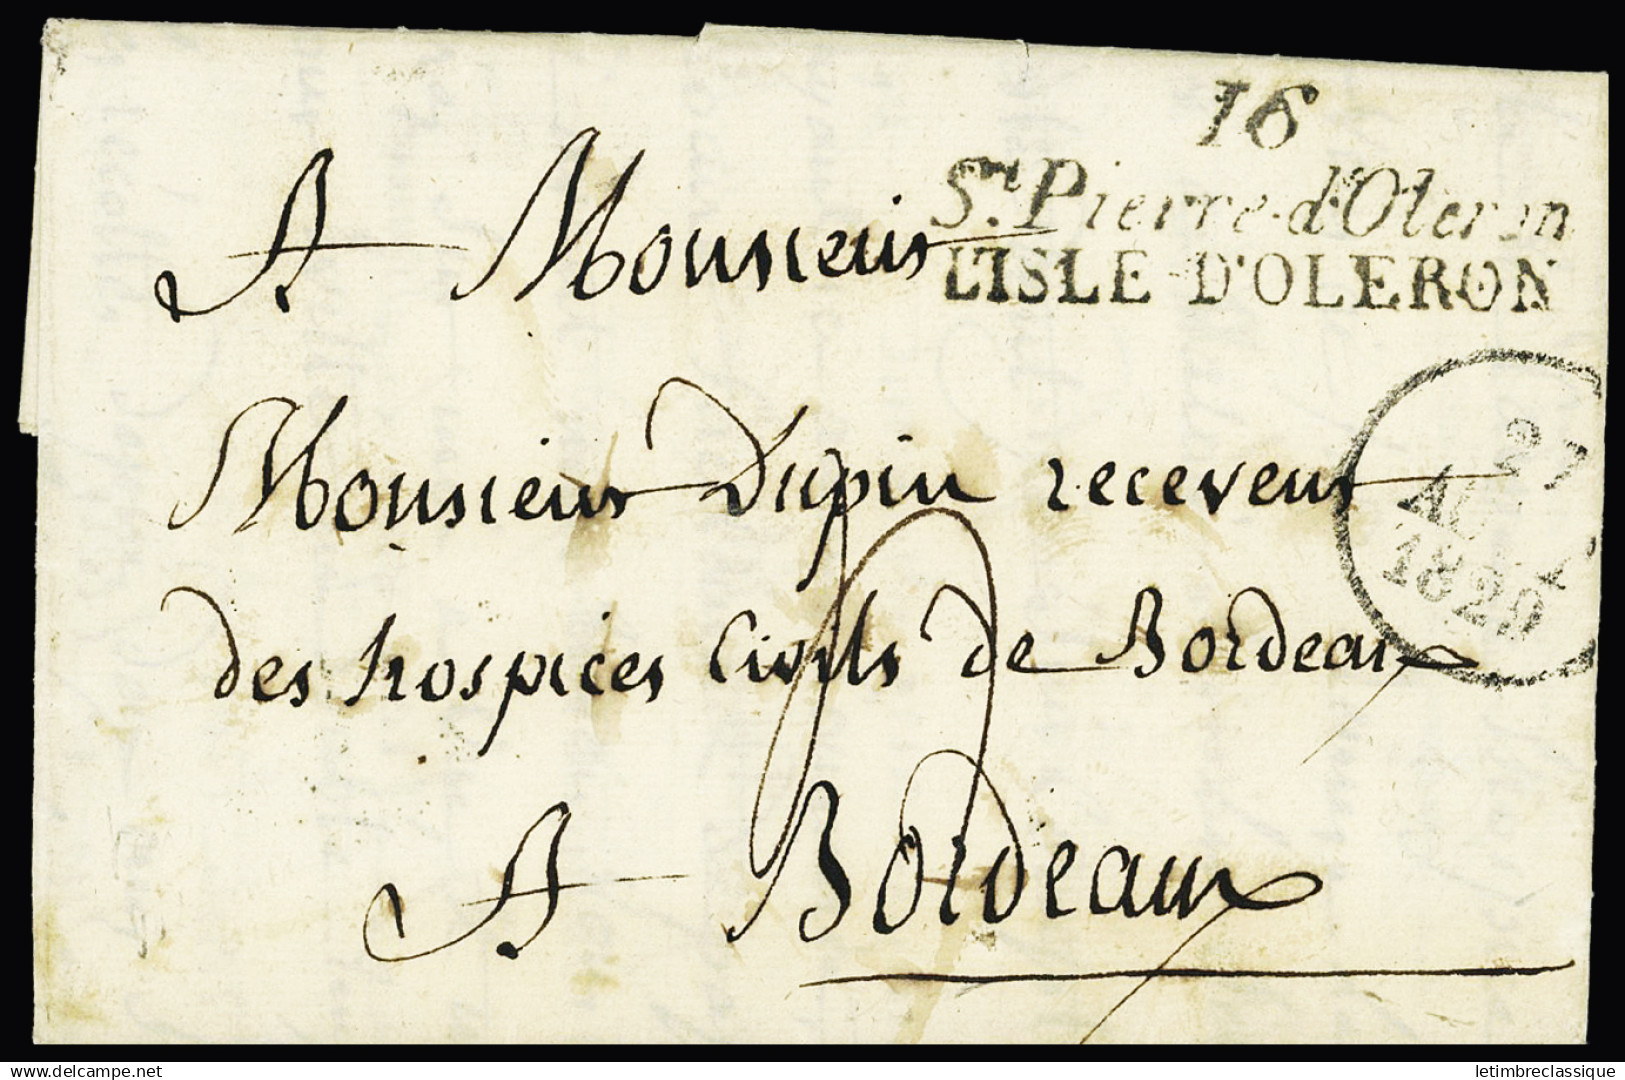 16
St. Pierre-d'Oleron
L'ISLE-D'OLERON
A Monsieur
27
AOUT
1829
Monsieur Dupin receveur
des hospices Civils de Bordeaux
A Bordeaux
delcampe.net
letimbreclassique